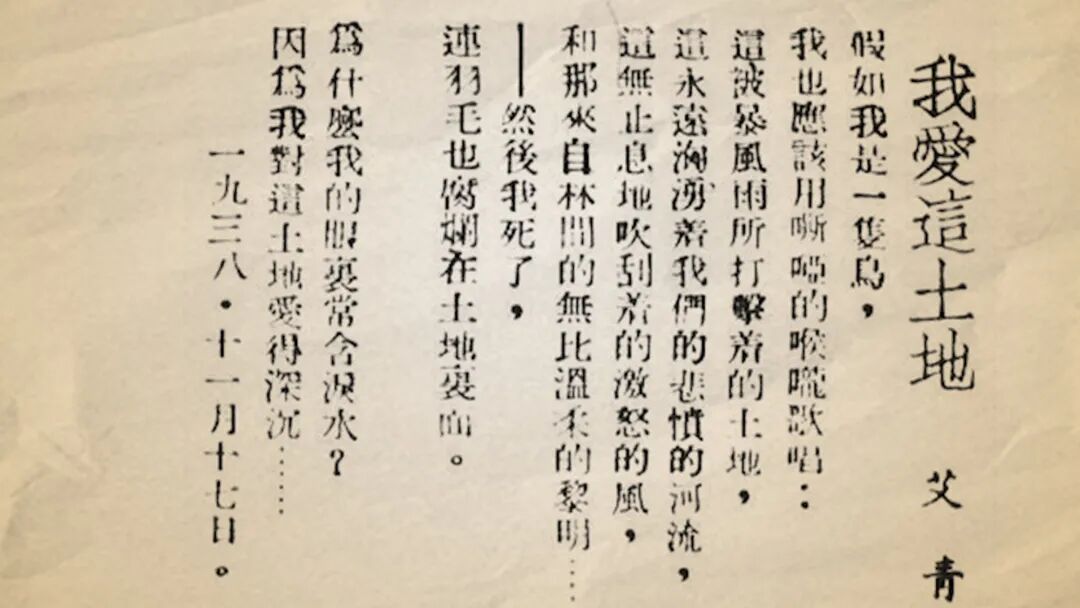 我愛這土地
艾青
假如我是一隻鳥，
我也應該用嘶啞的喉嚨歌唱：
這被暴風雨所打擊着的土地，
這永遠洶湧着我們的悲憤的河流，
這無止息地吹刮着的激怒的風，
和那來自林間的無比溫柔的黎明……
——然後我死了，
連羽毛也腐爛在土地裏面。
爲什麼我的眼裏常含淚水？
因爲我對這土地愛得深沉……
一九三八・十一月十七日。